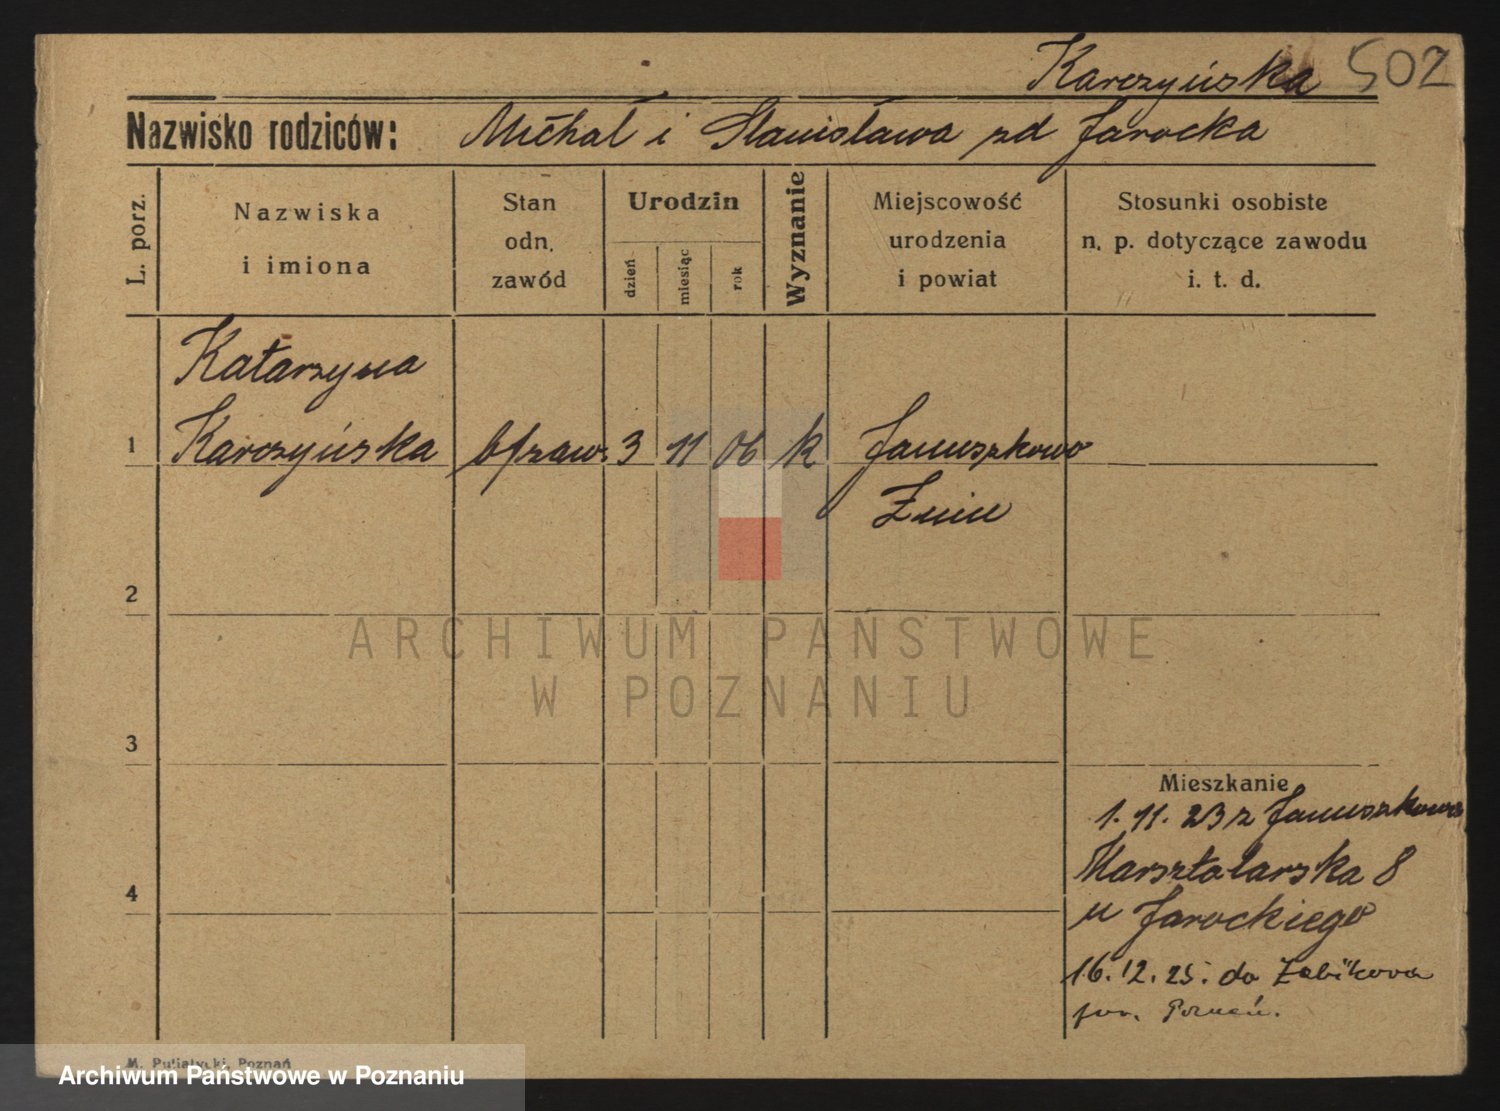 Karczyńska 502
Nazwisko rodziców: Michał i Stanisława zd Jarocka
L. porz.
Nazwiska
i imiona
Stan
odn.
zawód
Urodzin
dzień
miesiąc
rok
Wyznanie
Miejscowość
urodzenia
i powiat
Stosunki osobiste
n. p. dotyczące zawodu
i. t. d.
Katarzyna
1 Karczyńska b/zaw. 3 11 06 k Januszkowo
Żnin
2
ARCHIWUM PAŃSTWOWE
W POZNANIU
3
Mieszkanie
1. 11. 23 z Januszkowa
Marsztalarska 8
4
u Jarockiego
16. 12. 25. do Żabikowa
pow. Poznań.
M. Putiatycki, Poznań
Archiwum Państwowe w Poznaniu